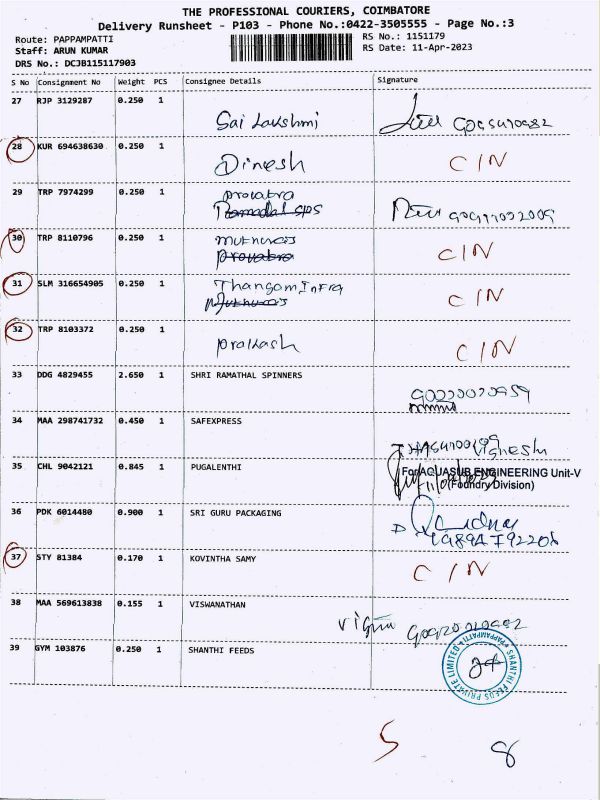 THE PROFESSIONAL COURIERS, COIMBATORE
Delivery Runsheet - P103 - Phone No.:0422-3505555 - Page No.:3
Route: PAPPAMPATTI RS No.: 1151179
Staff: ARUN KUMAR RS Date: 11-Apr-2023
DRS No.: DCJB115117903
S No Consignment No Weight PCS Consignee Details Signature
27 RJP 3129287 0.250 1
Sai Lakshmi
28 KUR 694638630 0.250 1
Dinesh C/N
29 TRP 7974299 0.250 1
30 TRP 8110796 0.250 1
C/N
31 SLM 316654905 0.250 1 Thangam infra
C/N
32 TRP 8103372 0.250 1
Prakash C/N
33 DDG 4829455 2.650 1 SHRI RAMATHAL SPINNERS
34 MAA 298741732 0.450 1 SAFEXPRESS
Vignesh
35 CHL 9042121 0.845 1 PUGALENTHI For AQUASUB ENGINEERING Unit-V
(Foundry Division)
36 PDK 6014480 0.900 1 SRI GURU PACKAGING
37 STY 81384 0.170 1 KOVINTHA SAMY
C/N
38 MAA 569613838 0.155 1 VISWANATHAN
39 GYM 103876 0.250 1 SHANTHI FEEDS
SHANTHI FEEDS PRIVATE LIMITED PAPPAMPATTI
5 8